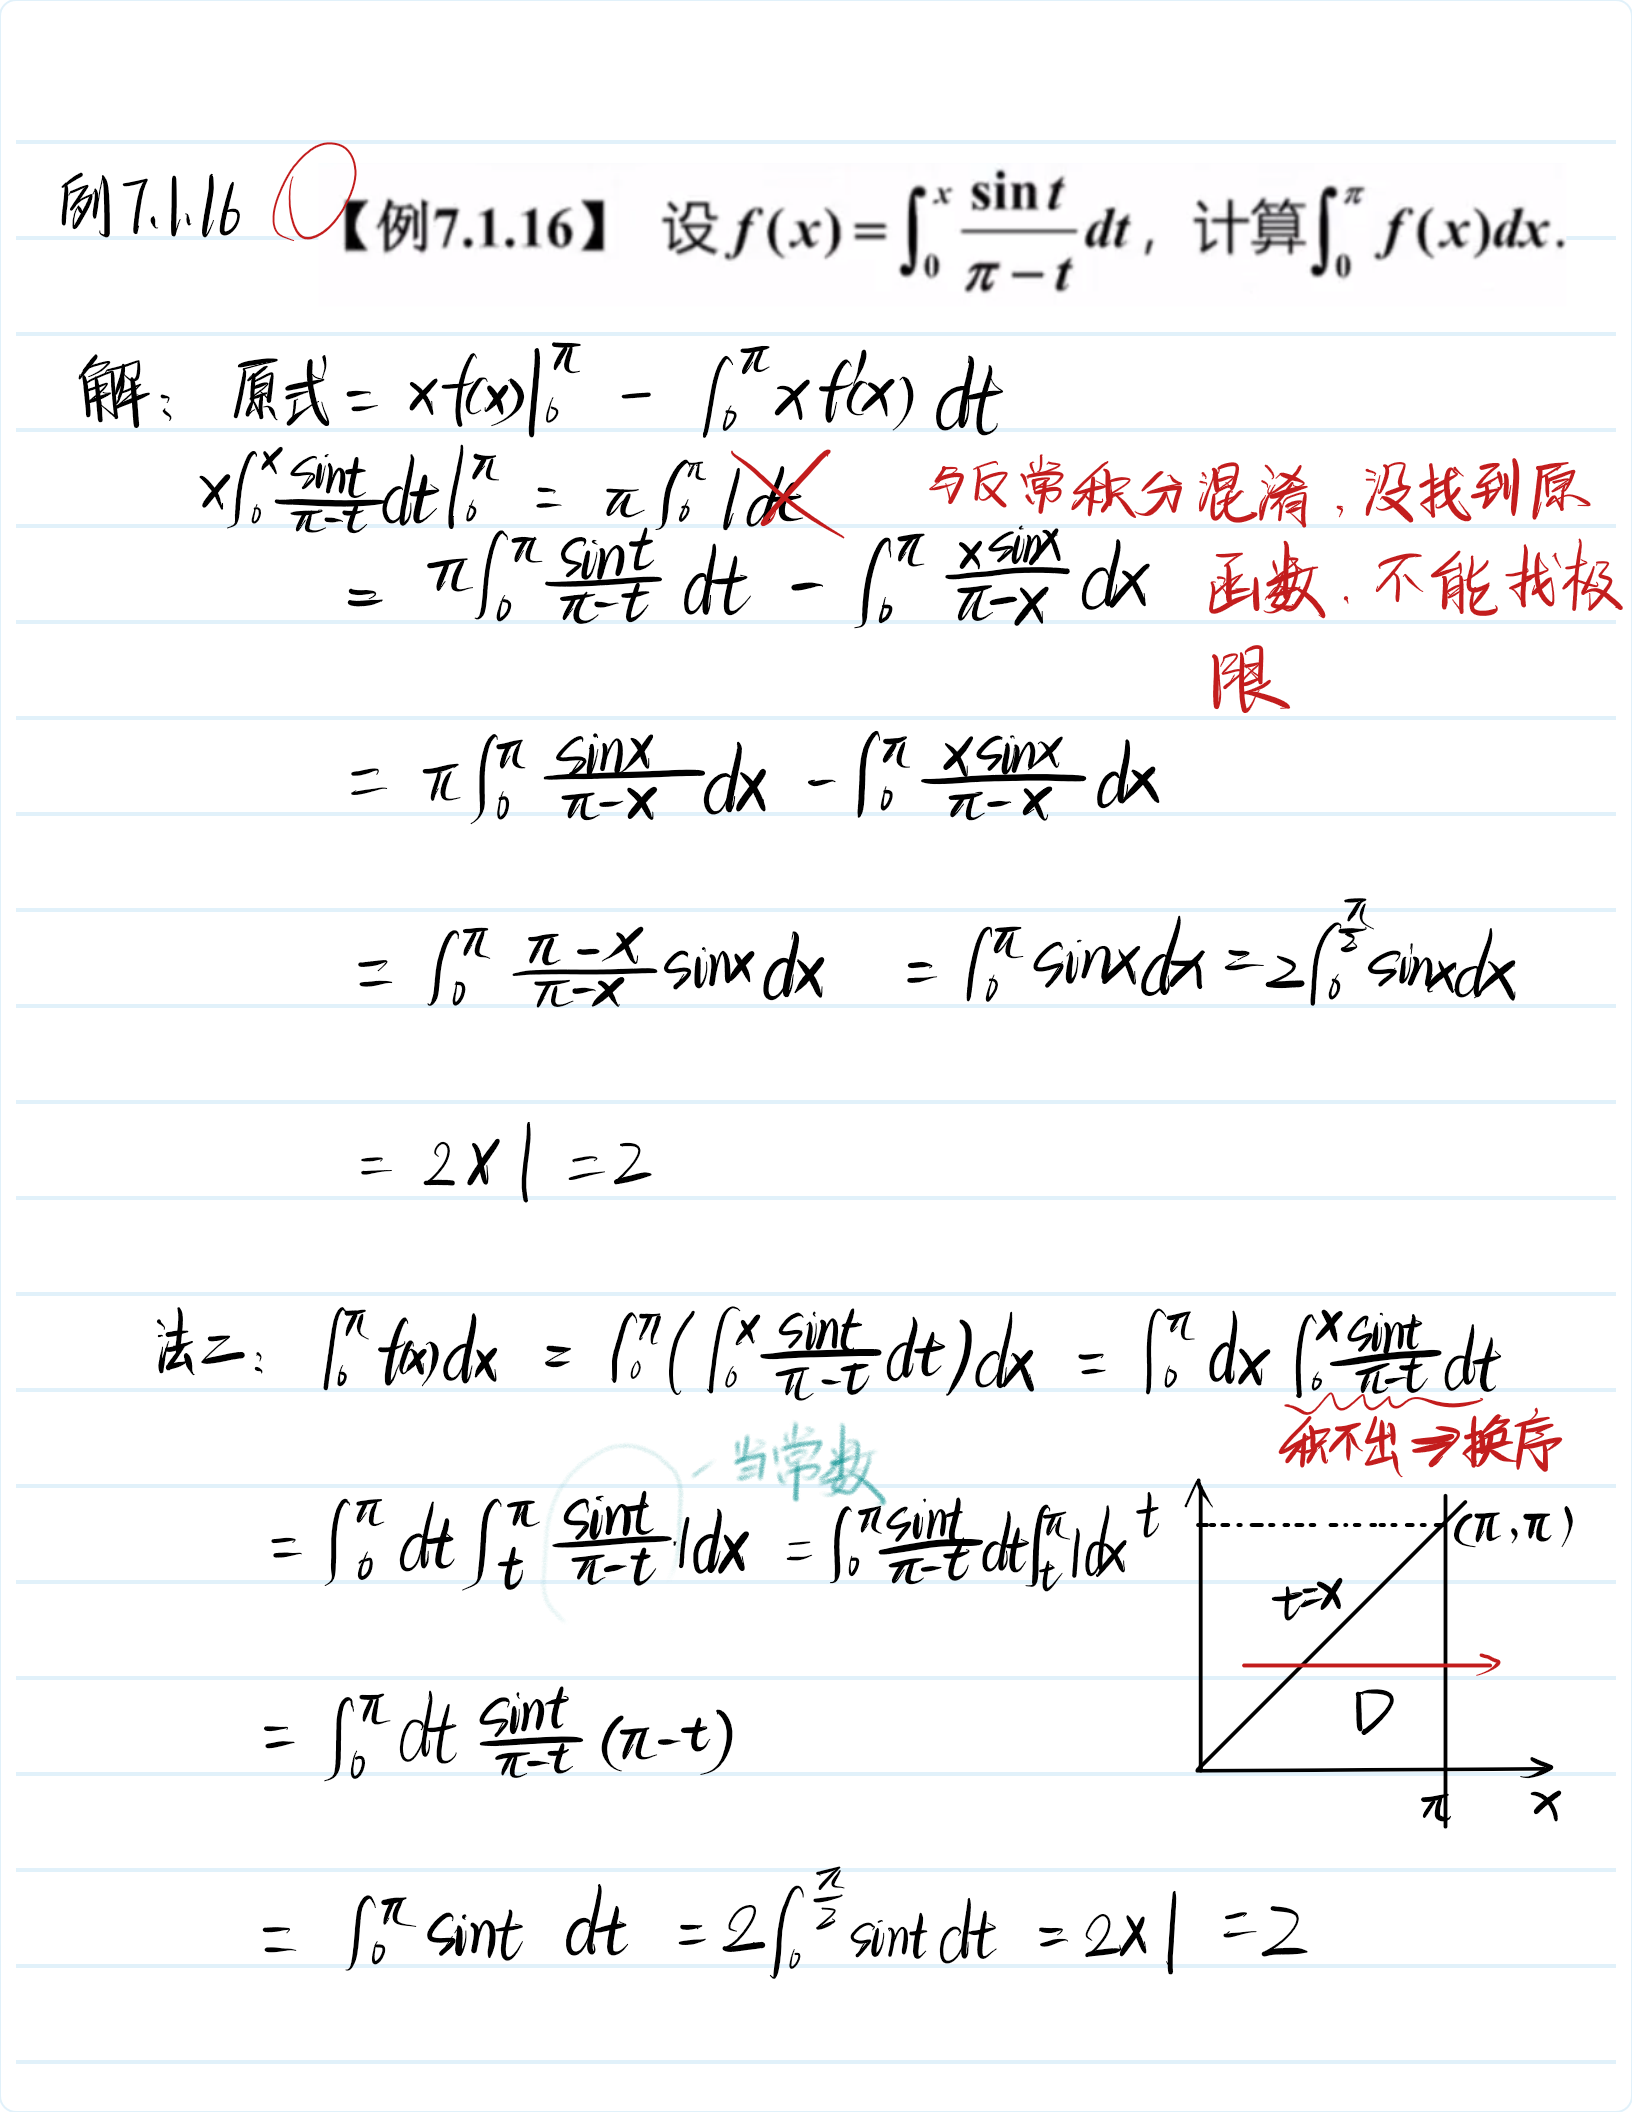 例7.1.16 【例7.1.16】 设 f(x) = ∫₀ˣ sin t/(π − t) dt, 计算∫₀^π f(x)dx.
解: 原式 = xf(x)|₀^π − ∫₀^π xf'(x) dt
x∫₀ˣ sint/(π−t) dt|₀^π = π∫₀^π 1dt 与反常积分混淆,没找到原
= π∫₀^π sint/(π−t) dt − ∫₀^π xsinx/(π−x) dx 函数.不能找极
限
= π∫₀^π sinx/(π−x) dx − ∫₀^π xsinx/(π−x) dx
= ∫₀^π (π−x)/(π−x) sinxdx = ∫₀^π sinxdx = 2∫₀^(π/2) sinxdx
= 2×1 = 2
法二: ∫₀^π f(x)dx = ∫₀^π (∫₀ˣ sint/(π−t) dt)dx = ∫₀^π dx ∫₀ˣ sint/(π−t) dt
当常数 积不出⇒换序
= ∫₀^π dt ∫ₜ^π sint/(π−t) ·1dx = ∫₀^π sint/(π−t) dt∫ₜ^π 1dx
t (π,π)
t=x
D
π x
= ∫₀^π dt sint/(π−t) (π−t)
= ∫₀^π sint dt = 2∫₀^(π/2) sintdt = 2×1 = 2